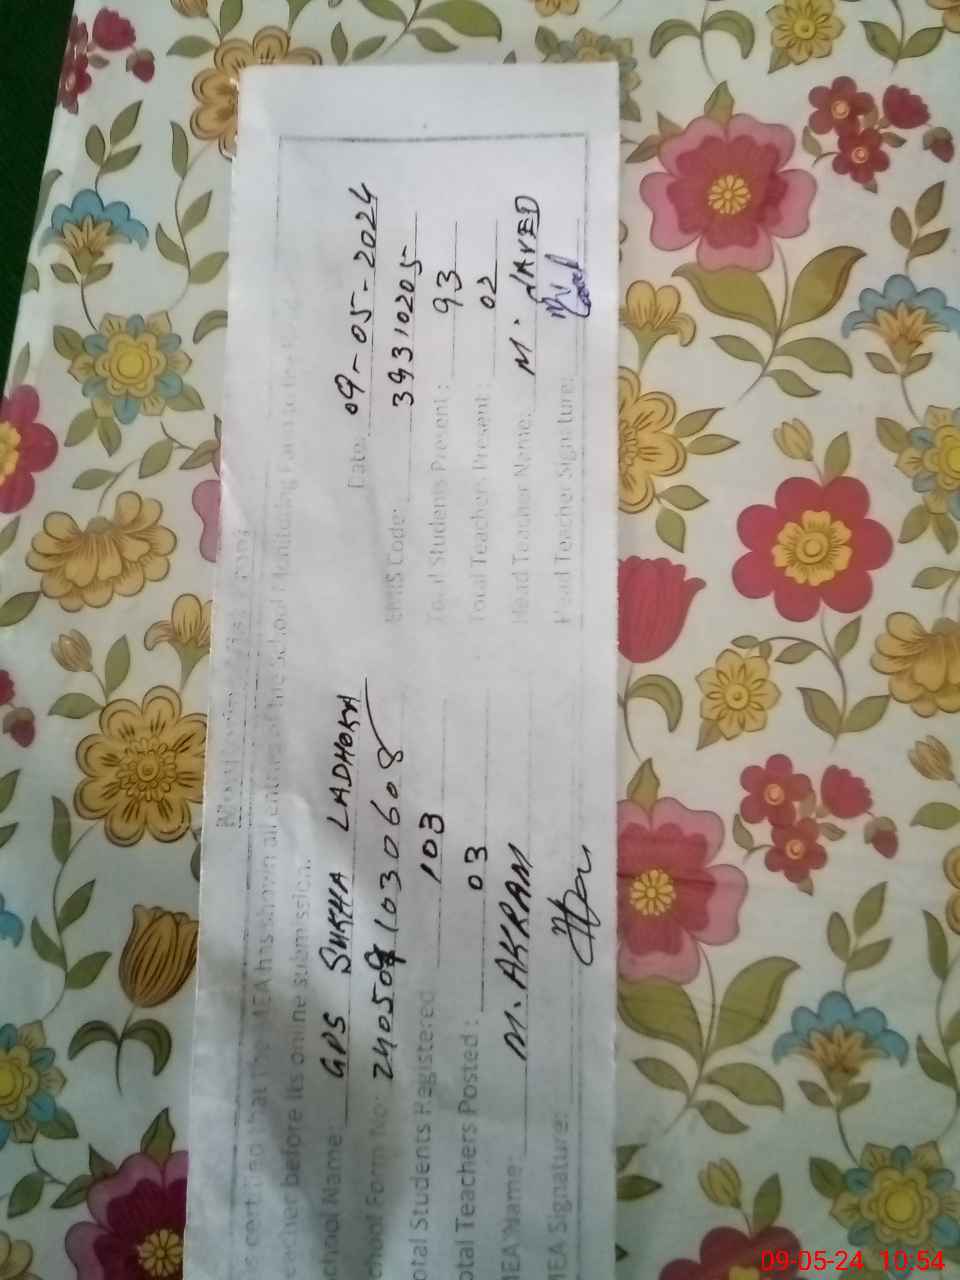 Monitoring
is certified that the MEA has shown all entries of the School Monitoring Form to the
teacher before its online submission.
School Name: GPS SUKHA LADHOKA Date: 09-05-2024
School Form No: 240509103 0608 EMIS Code: 39310205
Total Students Registered 103 Total Students Present: 93
Total Teachers Posted: 03 Total Teachers Present: 02
MEA Name: M. AKRAM Head Teacher Name: M. JAVED
MEA Signature: Head Teacher Signature:
09-05-24 10:54